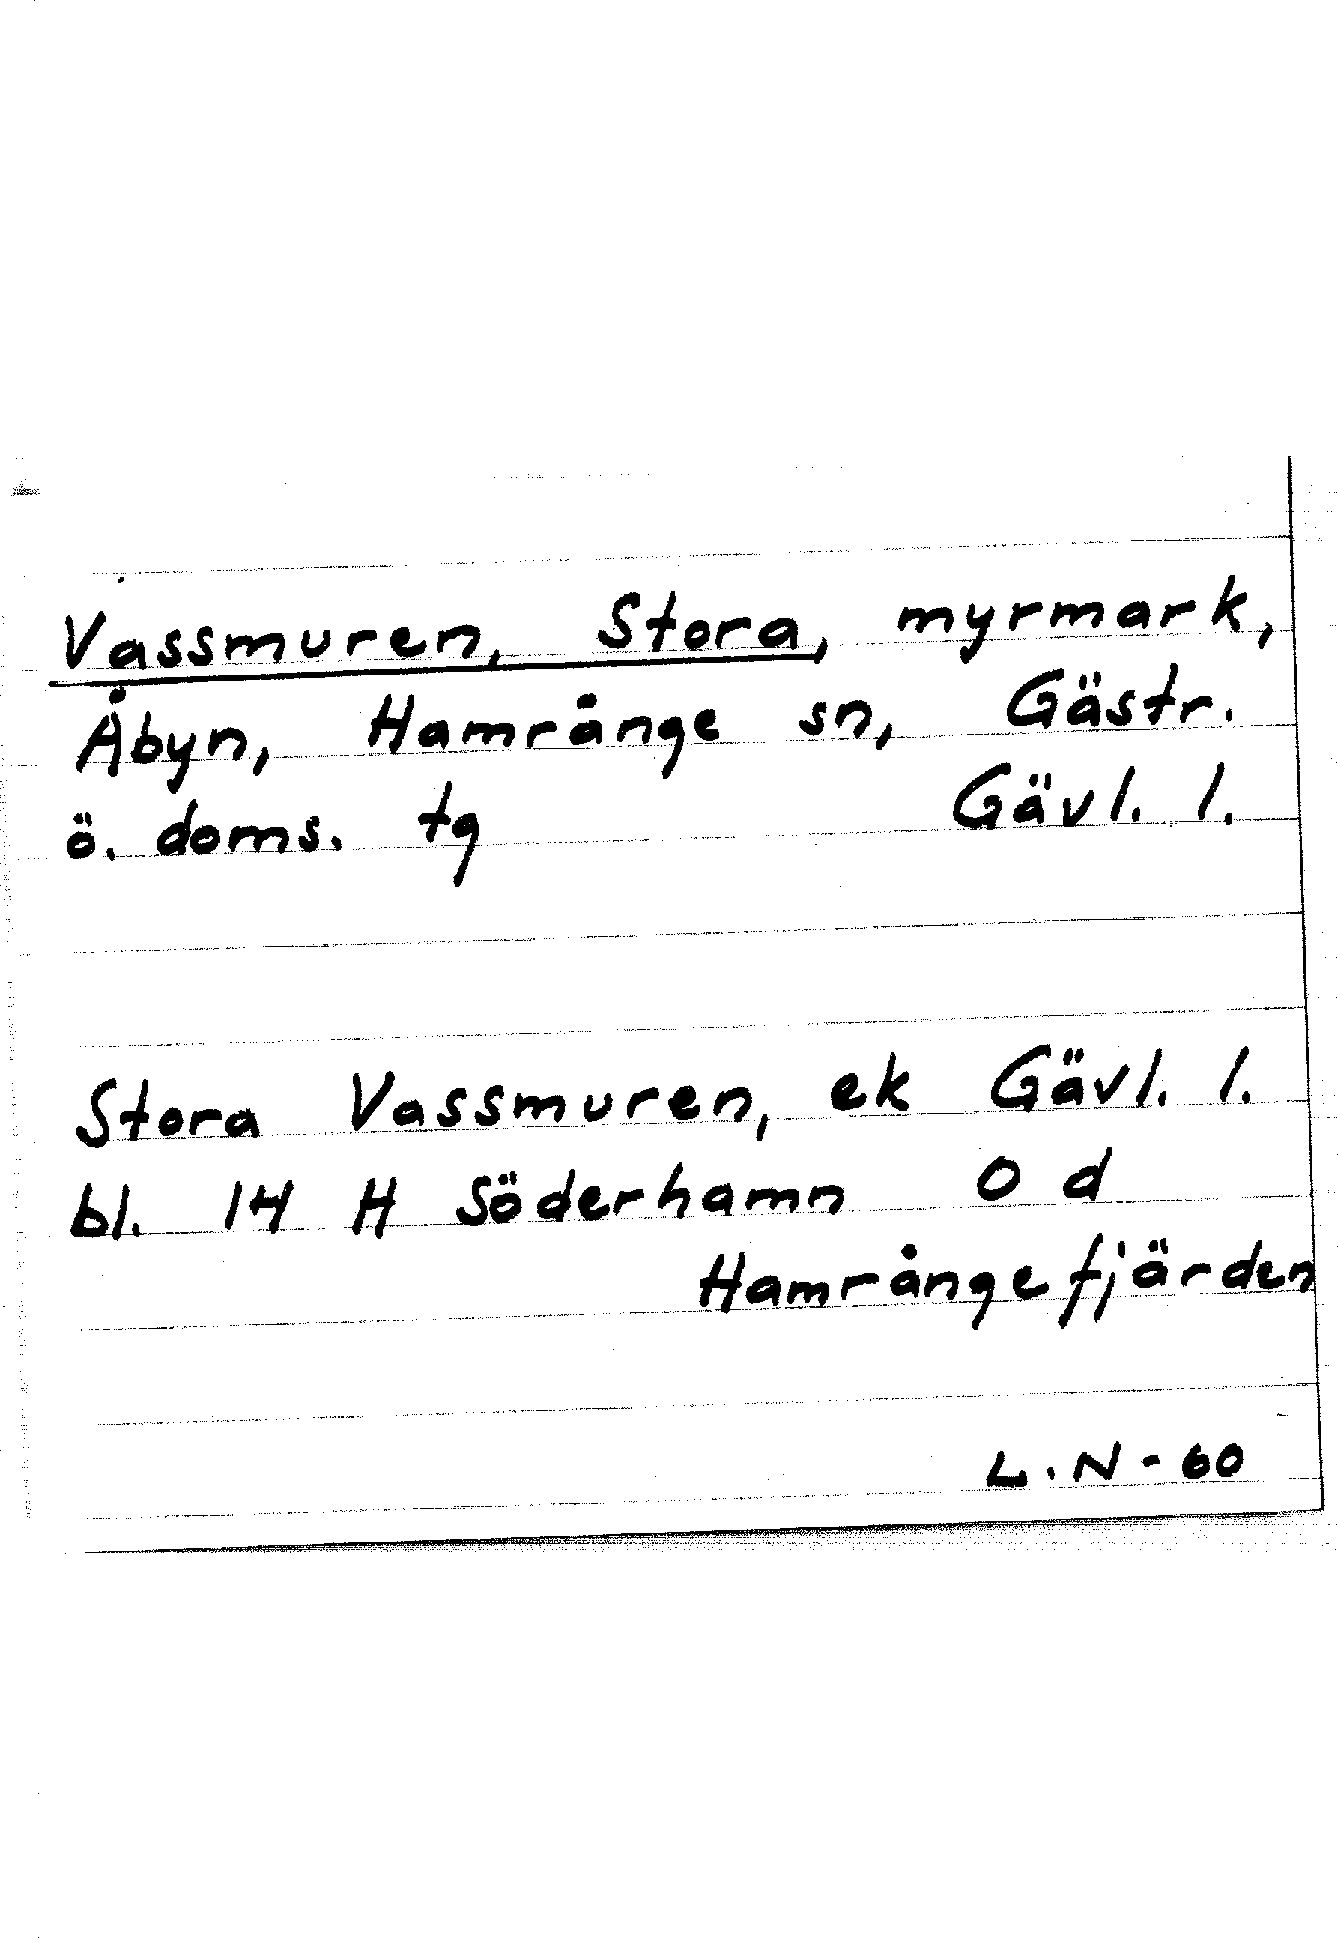 Vassmuren, Stora, myrmark,
Åbyn, Hamrånge sn, Gästr.
ö. doms. tg Gävl. l.
Stora Vassmuren, ek Gävl. l.
bl. 14 H Söderhamn 0 d
Hamrångefjärden
L. N - 60